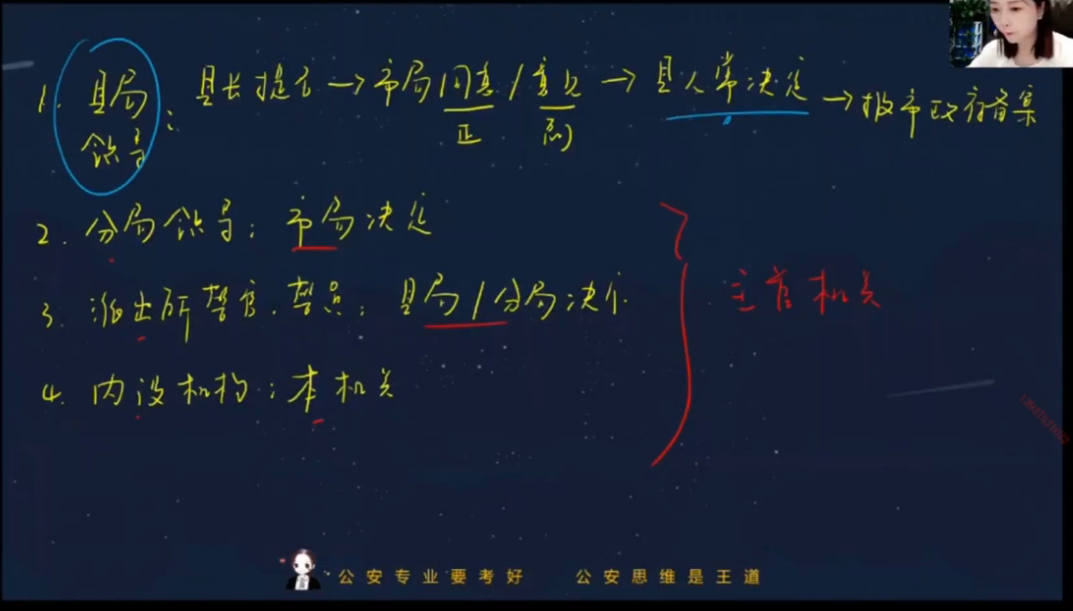 1. 县局领导：县长提名→市局同意/意见→县人常决定→报市政府备案
正 副
2. 分局领导：市局决定
3. 派出所警官、警员：县局/分局决定
主管机关
4. 内设机构：本机关
公安专业要考好 公安思维是王道